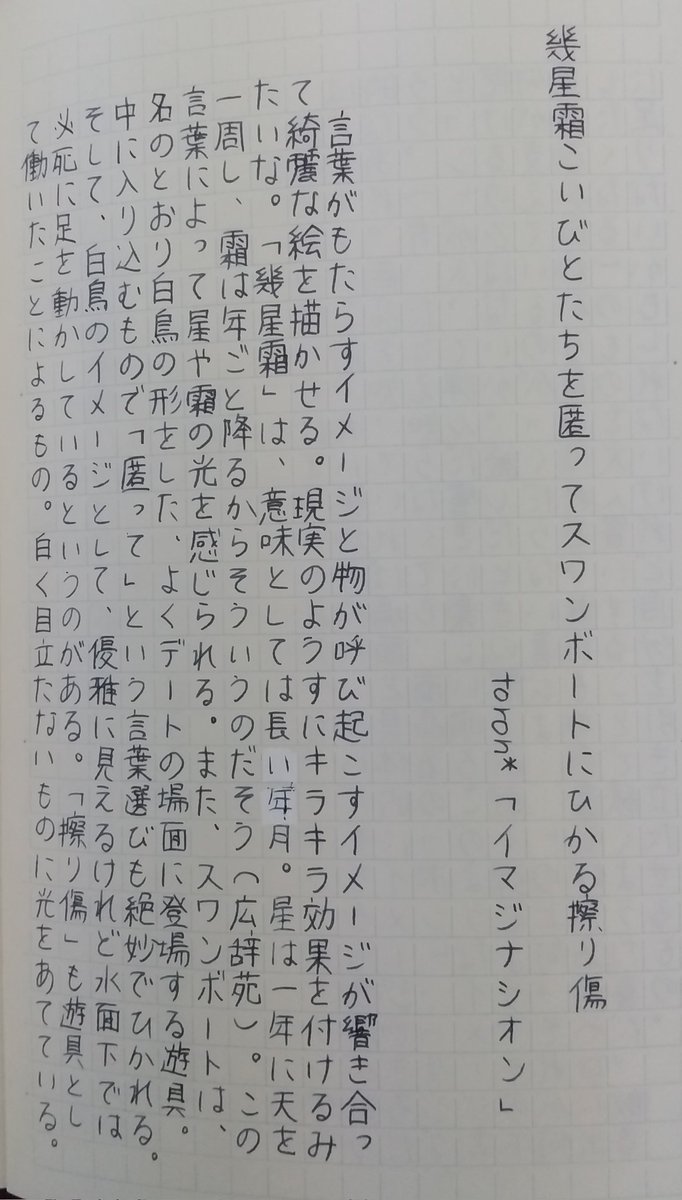 幾星霜こいびとたちを匿ってスワンボートにひかる擦り傷
toron*「イマジナシオン」
言葉がもたらすイメージと物が呼び起こすイメージが響き合っ
て綺麗な絵を描かせる。現実のようすにキラキラ効果を付けるみ
たいな。「幾星霜」は、意味としては長い年月。星は一年に天を
一周し、霜は年ごと降るからそういうのだそう（広辞苑）。この
言葉によって星や霜の光を感じられる。また、スワンボートは、
名のとおり白鳥の形をした、よくデートの場面に登場する遊具。
中に入り込むもので「匿って」という言葉選びも絶妙でひかれる。
そして、白鳥のイメージとして、優雅に見えるけれど水面下では
必死に足を動かしているというのがある。「擦り傷」も遊具とし
て働いたことによるもの。白く目立たないものに光をあてている。